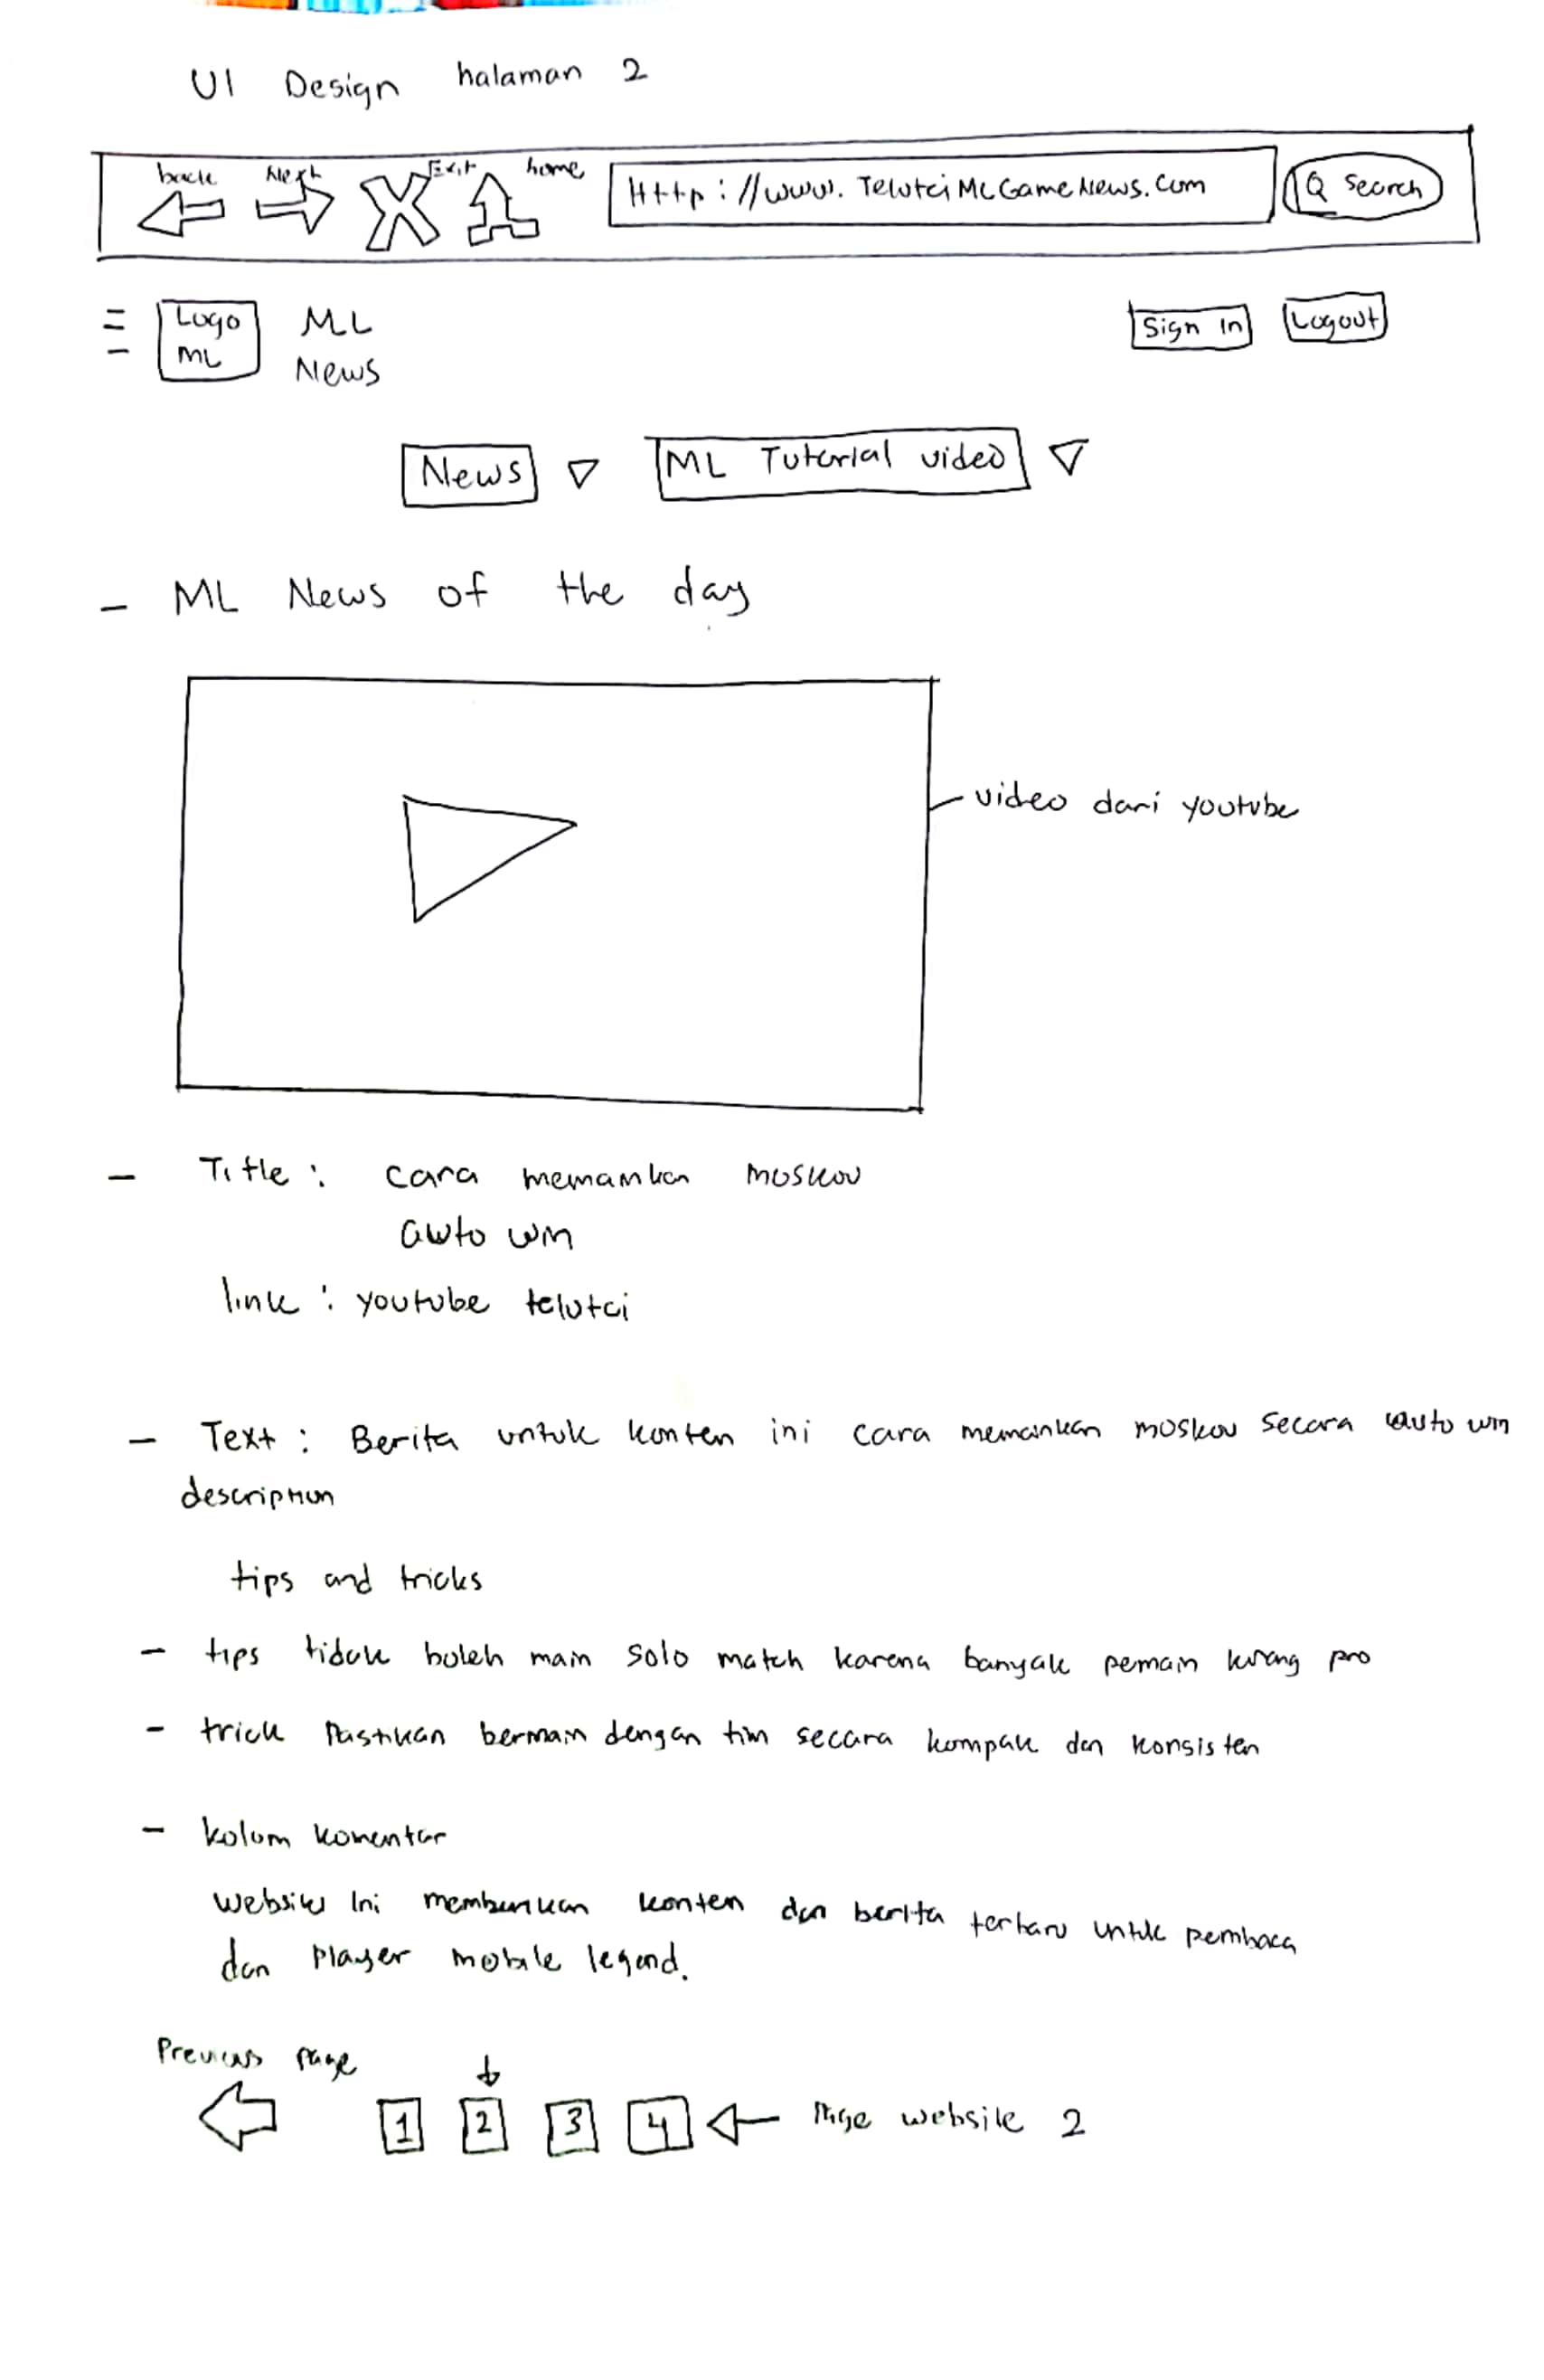 UI Design halaman 2
back Next Exit home
Http://www.TelutciMLGameNews.com
Q Search
Logo ML
ML News
Sign in Logout
News ML Tutorial video
- ML News of the day
video dari youtube
- Title : cara memainkan moskov
auto win
link : youtube telutci
- Text : Berita untuk konten ini cara memainkan moskov secara auto win
description
tips and tricks
- tips tidak boleh main solo match karena banyak pemain kurang pro
- trick Pastikan bermain dengan tim secara kompak dan konsisten
- kolom komentar
website Ini memberikan konten dan berita terbaru untuk pembaca
dan Player mobile legend.
Previous page
1 2 3 4 Page website 2